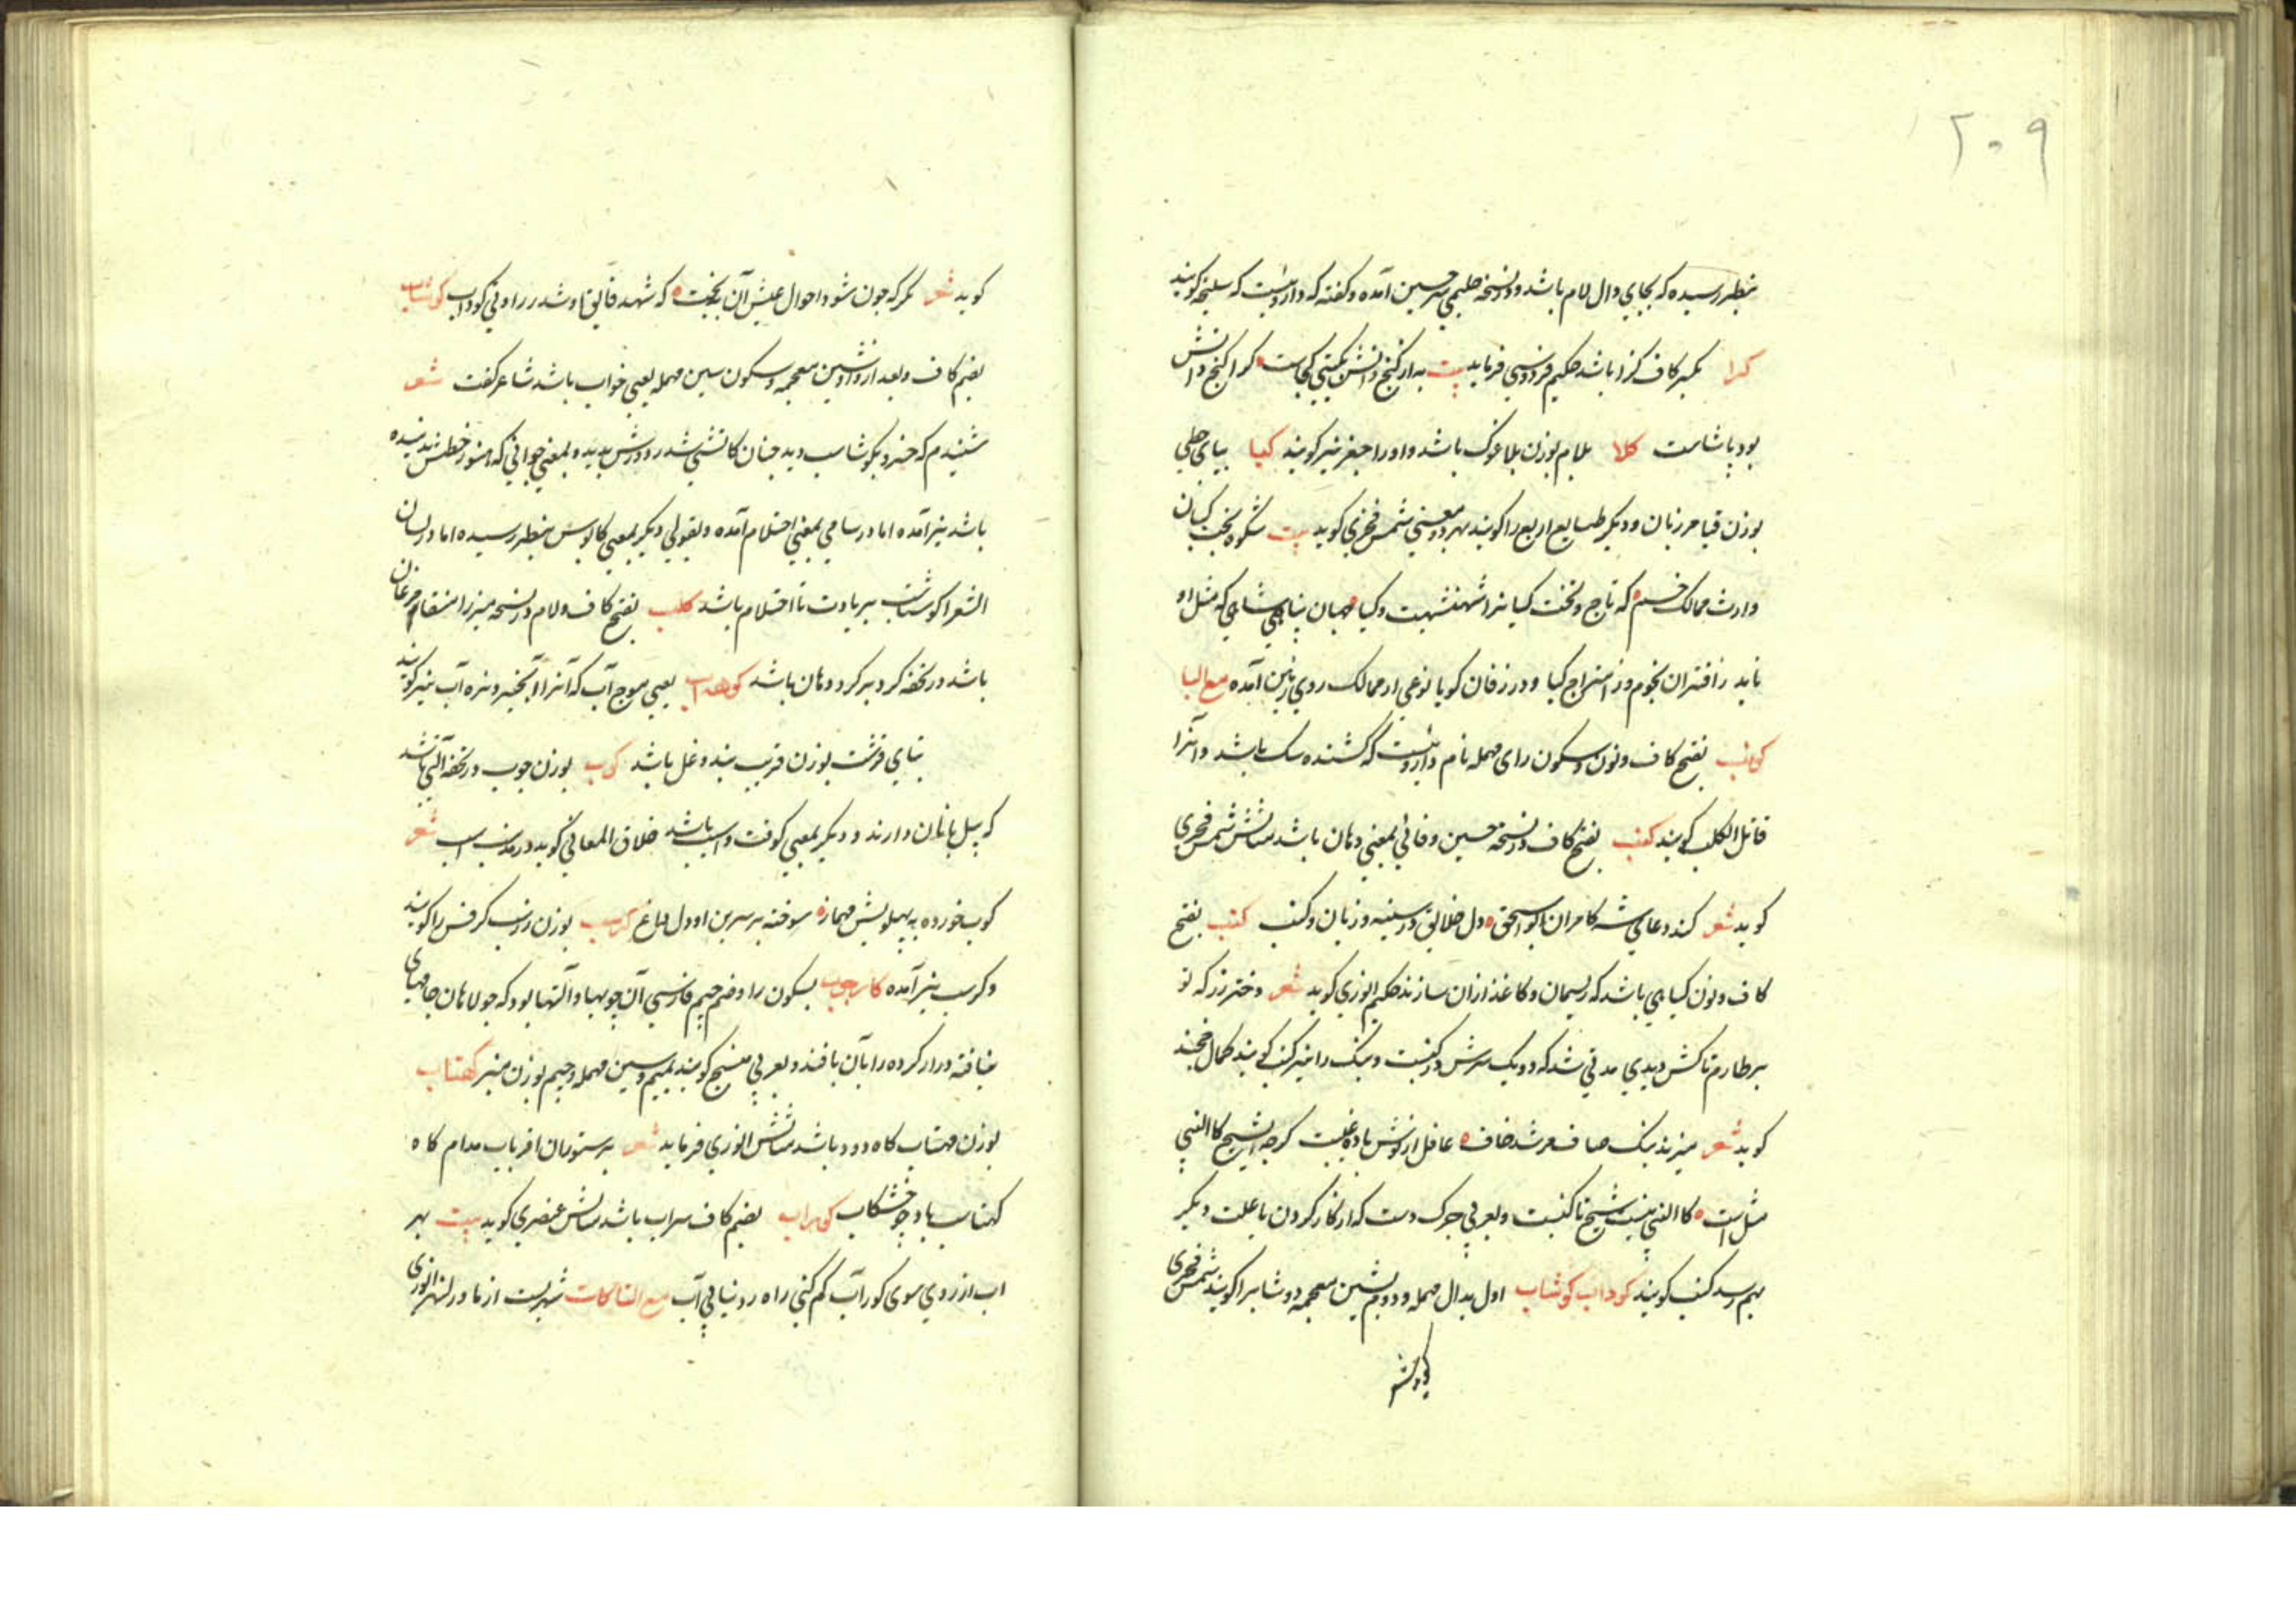 ۲۰۹
بنظر رسیده که بجای دال لام باشد و در نسخه حلیمی سر حسین آمده و کفته که داروئیست که سلیخه کویند
کرا بکسر کاف کرا باشد حکیم فردوسی فرماید بیت به از کنج دانش بکیتی کجاست کرا کنج دانش
بود پادشاست کلا بلام بوزن بلا غوک باشد و او را جغز نیز کویند کیا بیای حطی
بوزن قبا مرزبان و دیکر طبایع اربع را کویند بهر دو معنی شمس فخری کوید بیت شکوه بخت کیان
وارث ممالک جسم که تاج و تخت کیانرا شهنشهست و کیا جهان پناهی شاهی که مثل او
ناید ز اقتران نجوم و ز امتزاج کیا و در زفان کویا نوعی از ممالک روی زمین آمده مع البا
بفتح کاف و نون و سکون رای مهمله نام داروئیست که کشنده سک باشد و آنرا
قاتل الکلب کویند کنب بفتح کاف و در نسخه حسین وفائی بمعنی دهان باشد مثالش شمس فخری
کوید شعر کند دعای شه کامران ابو اسحق دل خلایق در سینه و زبان در کنب کنب بفتح
کاف و نون کیاهی باشد که ریسمان و کاغذ ازان سازند حکیم انوری کوید شعر دختر رز که تو
بر طارم تاکش دیدی مدتی شد که در سرش در کنبست و بنک را نیز کنب کویند کمال خجند
کوید شعر میزند بنک صاف مرشد خاف غافل از نوش باده عنبیست کرچه شیخ کا النبی
مثل است کا النبی نیست شیخ ما کنبیست و بعربی چرک دست که از کار کردن یا علت دیکر
بهم رسد کنب کویند کوداب کوشاب اول بدال مهمله و دوم بشین معجمه دوشابرا کویند شمس فخری
کوید شعر
کوید شعر مکر که چون شود احوال عیش آن بدبخت که شهد فایق او شد درراوق کوداب کوشاسب
بضم کاف و بعد از واو شین معجمه و سکون سین مهمله یعنی خواب باشد شاعر کفت شعر
شنیدم که خسرو بکوشاسب دید چنان کاتشی شد ز دورش پدید و بمعنی جوانی که هنوز خطش ندمیده
باشد نیز آمده اما در سامی بمعنی احتلام آمده و بقولی دیکر بمعنی کابوس بنظر رسیده اما در لسان
الشعرا کوشاسب باشد کلب بفتح کاف و لام در نسخه میرزا منقار مرغان
باشد و در تحفه کرد بر کرد دهان باشد کوهه آب یعنی موج آب که آنرا آبخیز و نره آب نیز کویند
بتای قرشت بوزن فریب بند و غل باشد کوب بوزن چوب در تحفه آلتی باشد
که پیل بانان دارند و دیکر بمعنی کوفت و آسیب باشد خلاق المعانی کوید در مذمت اسب شعر
کوب خورده به پهلویش مهمازه سوخته بر سرین او دل داغ کرسب بوزن کرفس را کویند
و کرسب نیز آمده کارچوب بسکون را و ضم جیم فارسی آن چوبها و آلتها بود که جولاهان جامهای
نبافته و دراز کرده را بآن بافند و بعربی منسج کویند بمیم و سین مهمله و جیم بوزن منبر کهتاب
بوزن مهتاب کاه دود باشد مثالش انوری فرماید شعر بر ستوران و اقربات مدام کاه
کهتاب باد و جو خشکاب کوراب بضم کاف سراب باشد مثالش عنصری کوید بیت بهر
اب از روی سوی کوراب کم کنی راه و نیابی آب مع التا کات شهریست از ماورالنهر انوری